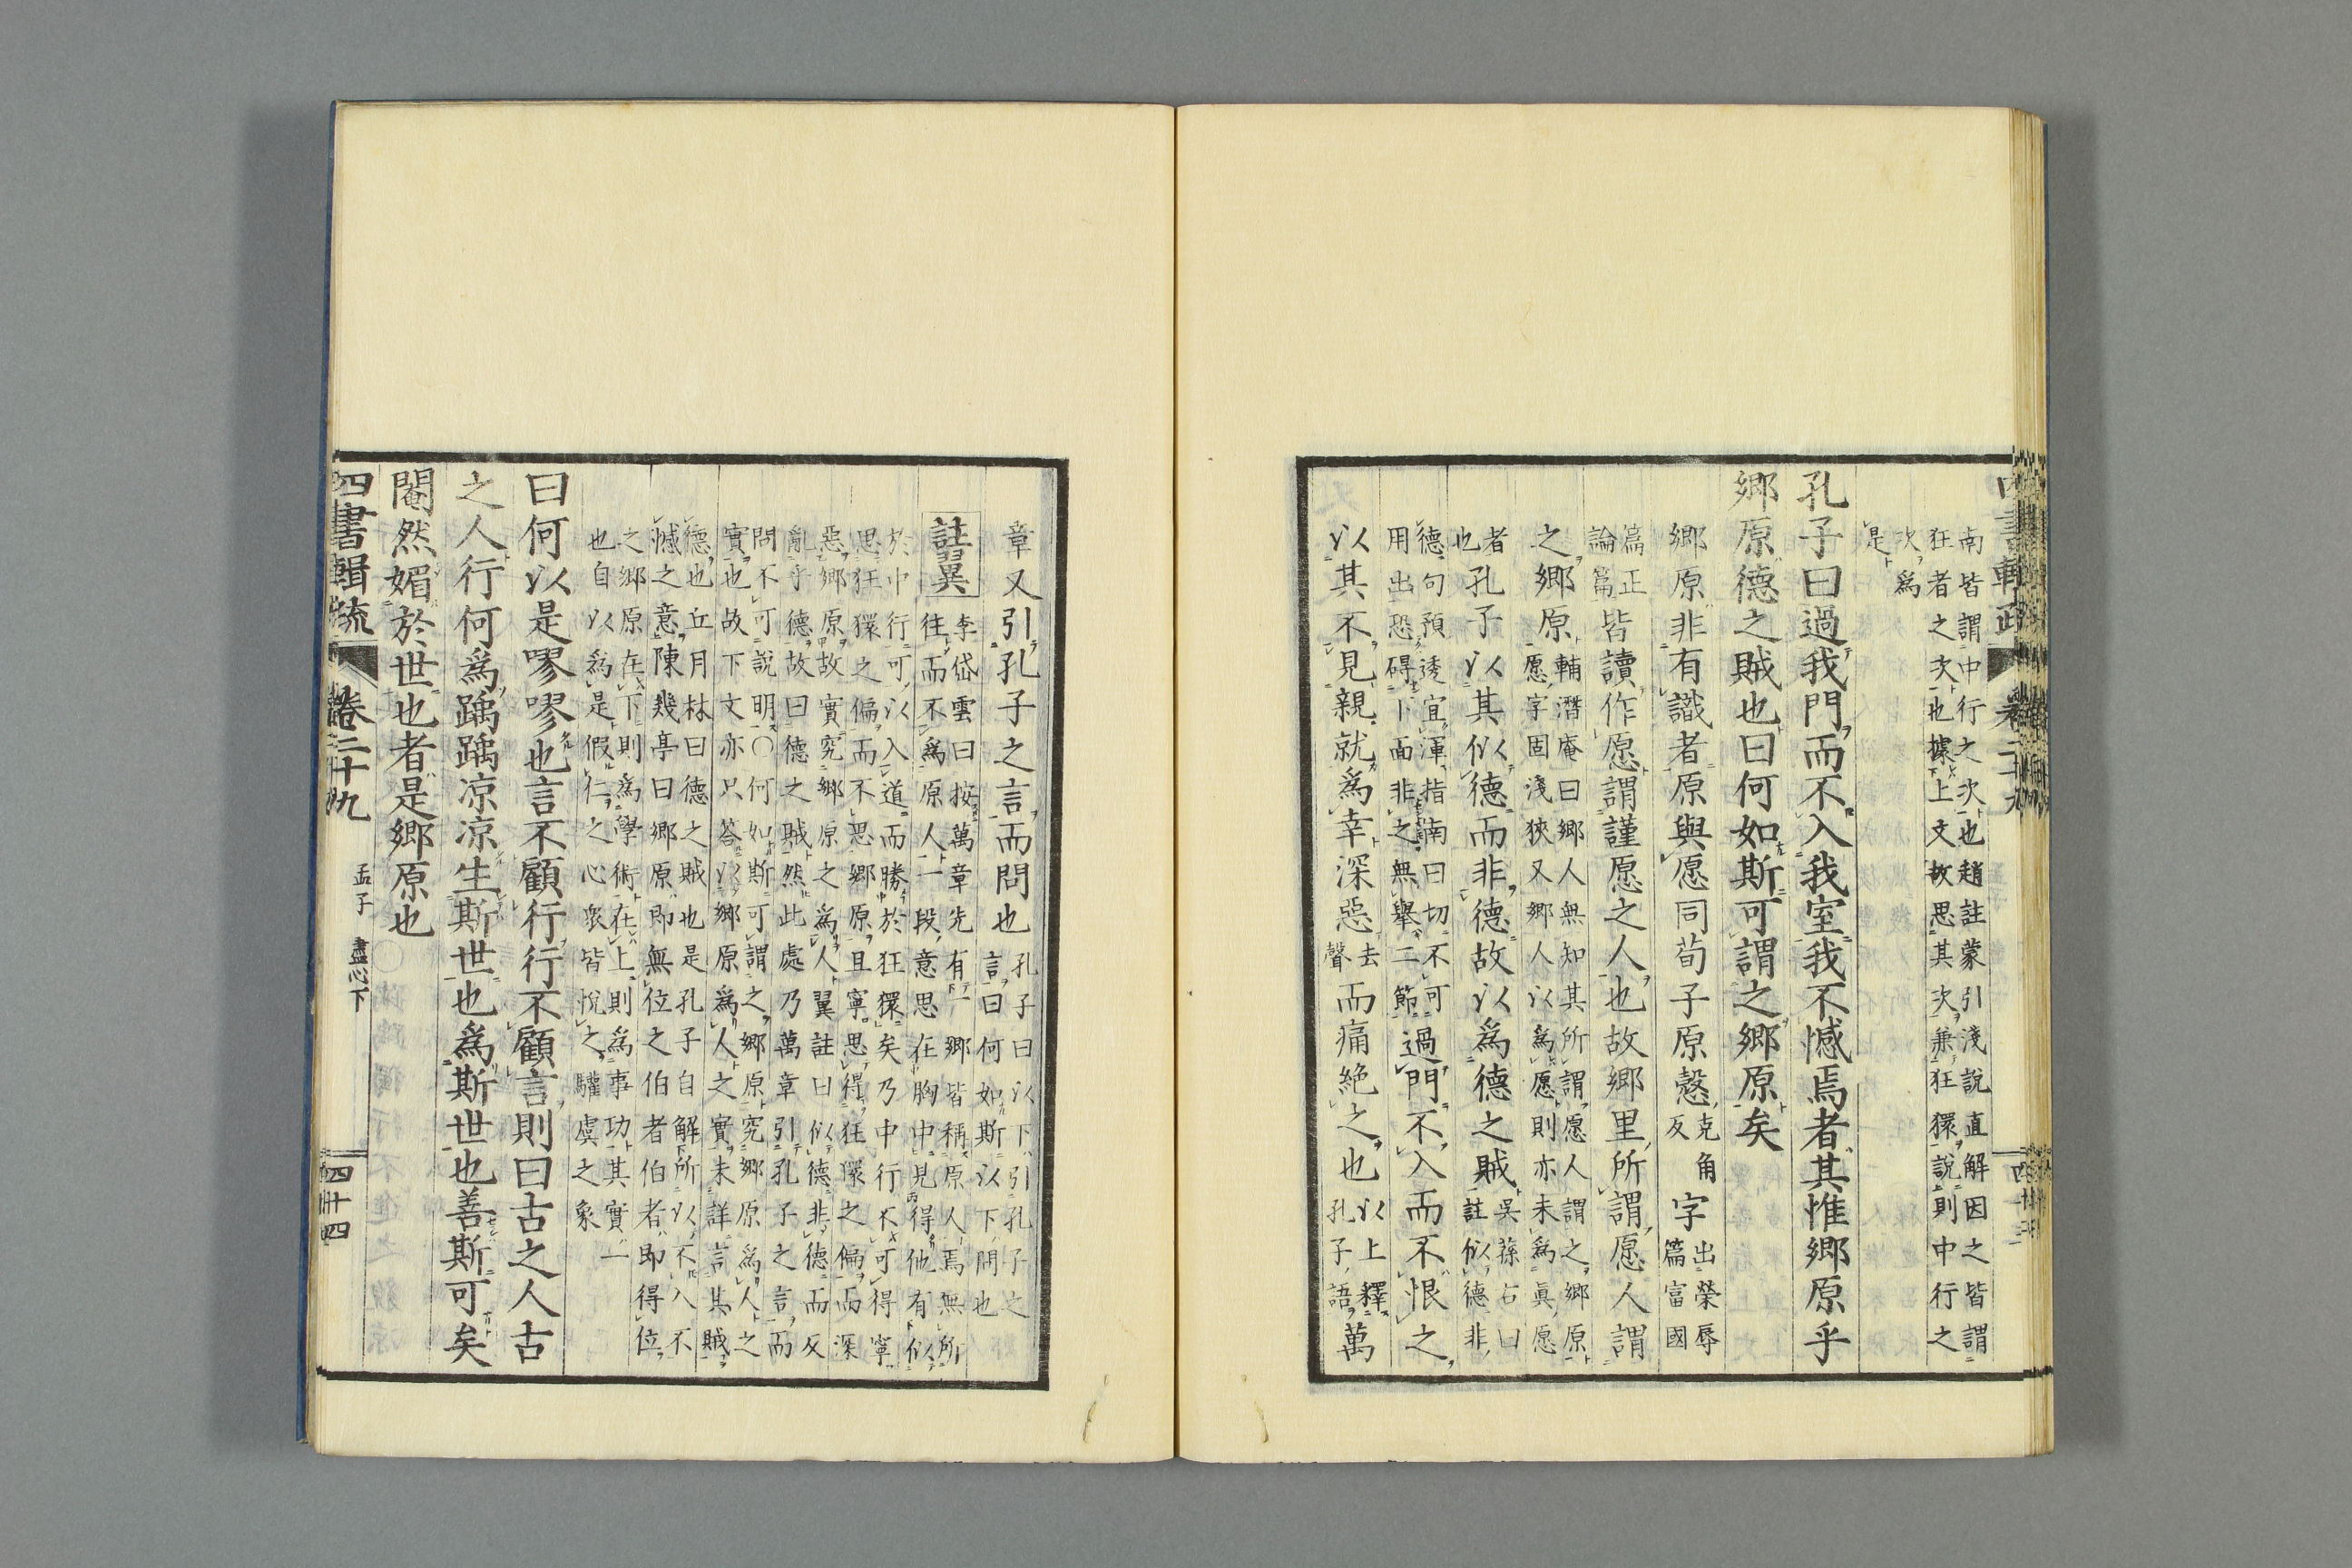 南皆謂中行之次也趙註蒙引淺説直解因之皆謂
狂者之次也據上文故思其次兼狂獧説則中行之
次爲
是
孔子曰過我門而不入我室我不憾焉者其惟鄉原乎
鄉原德之賊也曰何如斯可謂之鄉原矣
鄉原非有識者原與愿同荀子原愨克角反字出榮辱篇富國
篇正論篇皆讀作愿謂謹愿之人也故鄉里所謂愿人謂
之鄉原輔潛庵曰鄉人無知其所謂愿人謂之鄉原愿字固淺狹又鄉人以爲愿則亦未爲眞愿
者也孔子以其似德而非德故以爲德之賊吳蓀右曰註似德非
德句預透宜渾指南曰切不可用出恐碍下面非之無舉二節過門不入而不恨之
以其不見親就爲幸深惡去聲而痛絶之也以上釋孔子語萬
章又引孔子之言而問也孔子曰以下引孔子之言曰何如斯以下問也
註翼李岱雲曰按萬章先有一鄉皆稱原人焉無所
往而不爲原人一段意思在胸中見得他有似
於中行可以入道而勝於狂獧矣乃中行不可得寧
思狂獧之偏而不思鄉原且寧思得狂獧之偏而深
惡鄉原故實究鄉原之爲人翼註曰似德非德而反
亂乎德故曰德之賊然此處乃萬章引孔子之言而
問不可説明〇何如斯可謂之鄉原究鄉原爲人之
實也故下文亦只答以鄉原爲人之實未詳言其賊
德也丘月林曰德之賊也是孔子自解所以不入不
憾之意陳幾亭曰鄉原即無位之伯者伯者即得位
之鄉原在下則爲學術在上則爲事功其實一
也自以爲是假仁之心衆皆悅之驩虞之象
曰何以是嘐嘐也言不顧行行不顧言則曰古之人古
之人行何爲踽踽凉凉生斯世也爲斯世也善斯可矣
閹然媚於世也者是鄉原也
四書輯疏 卷二十九 孟子 盡心下 四十四